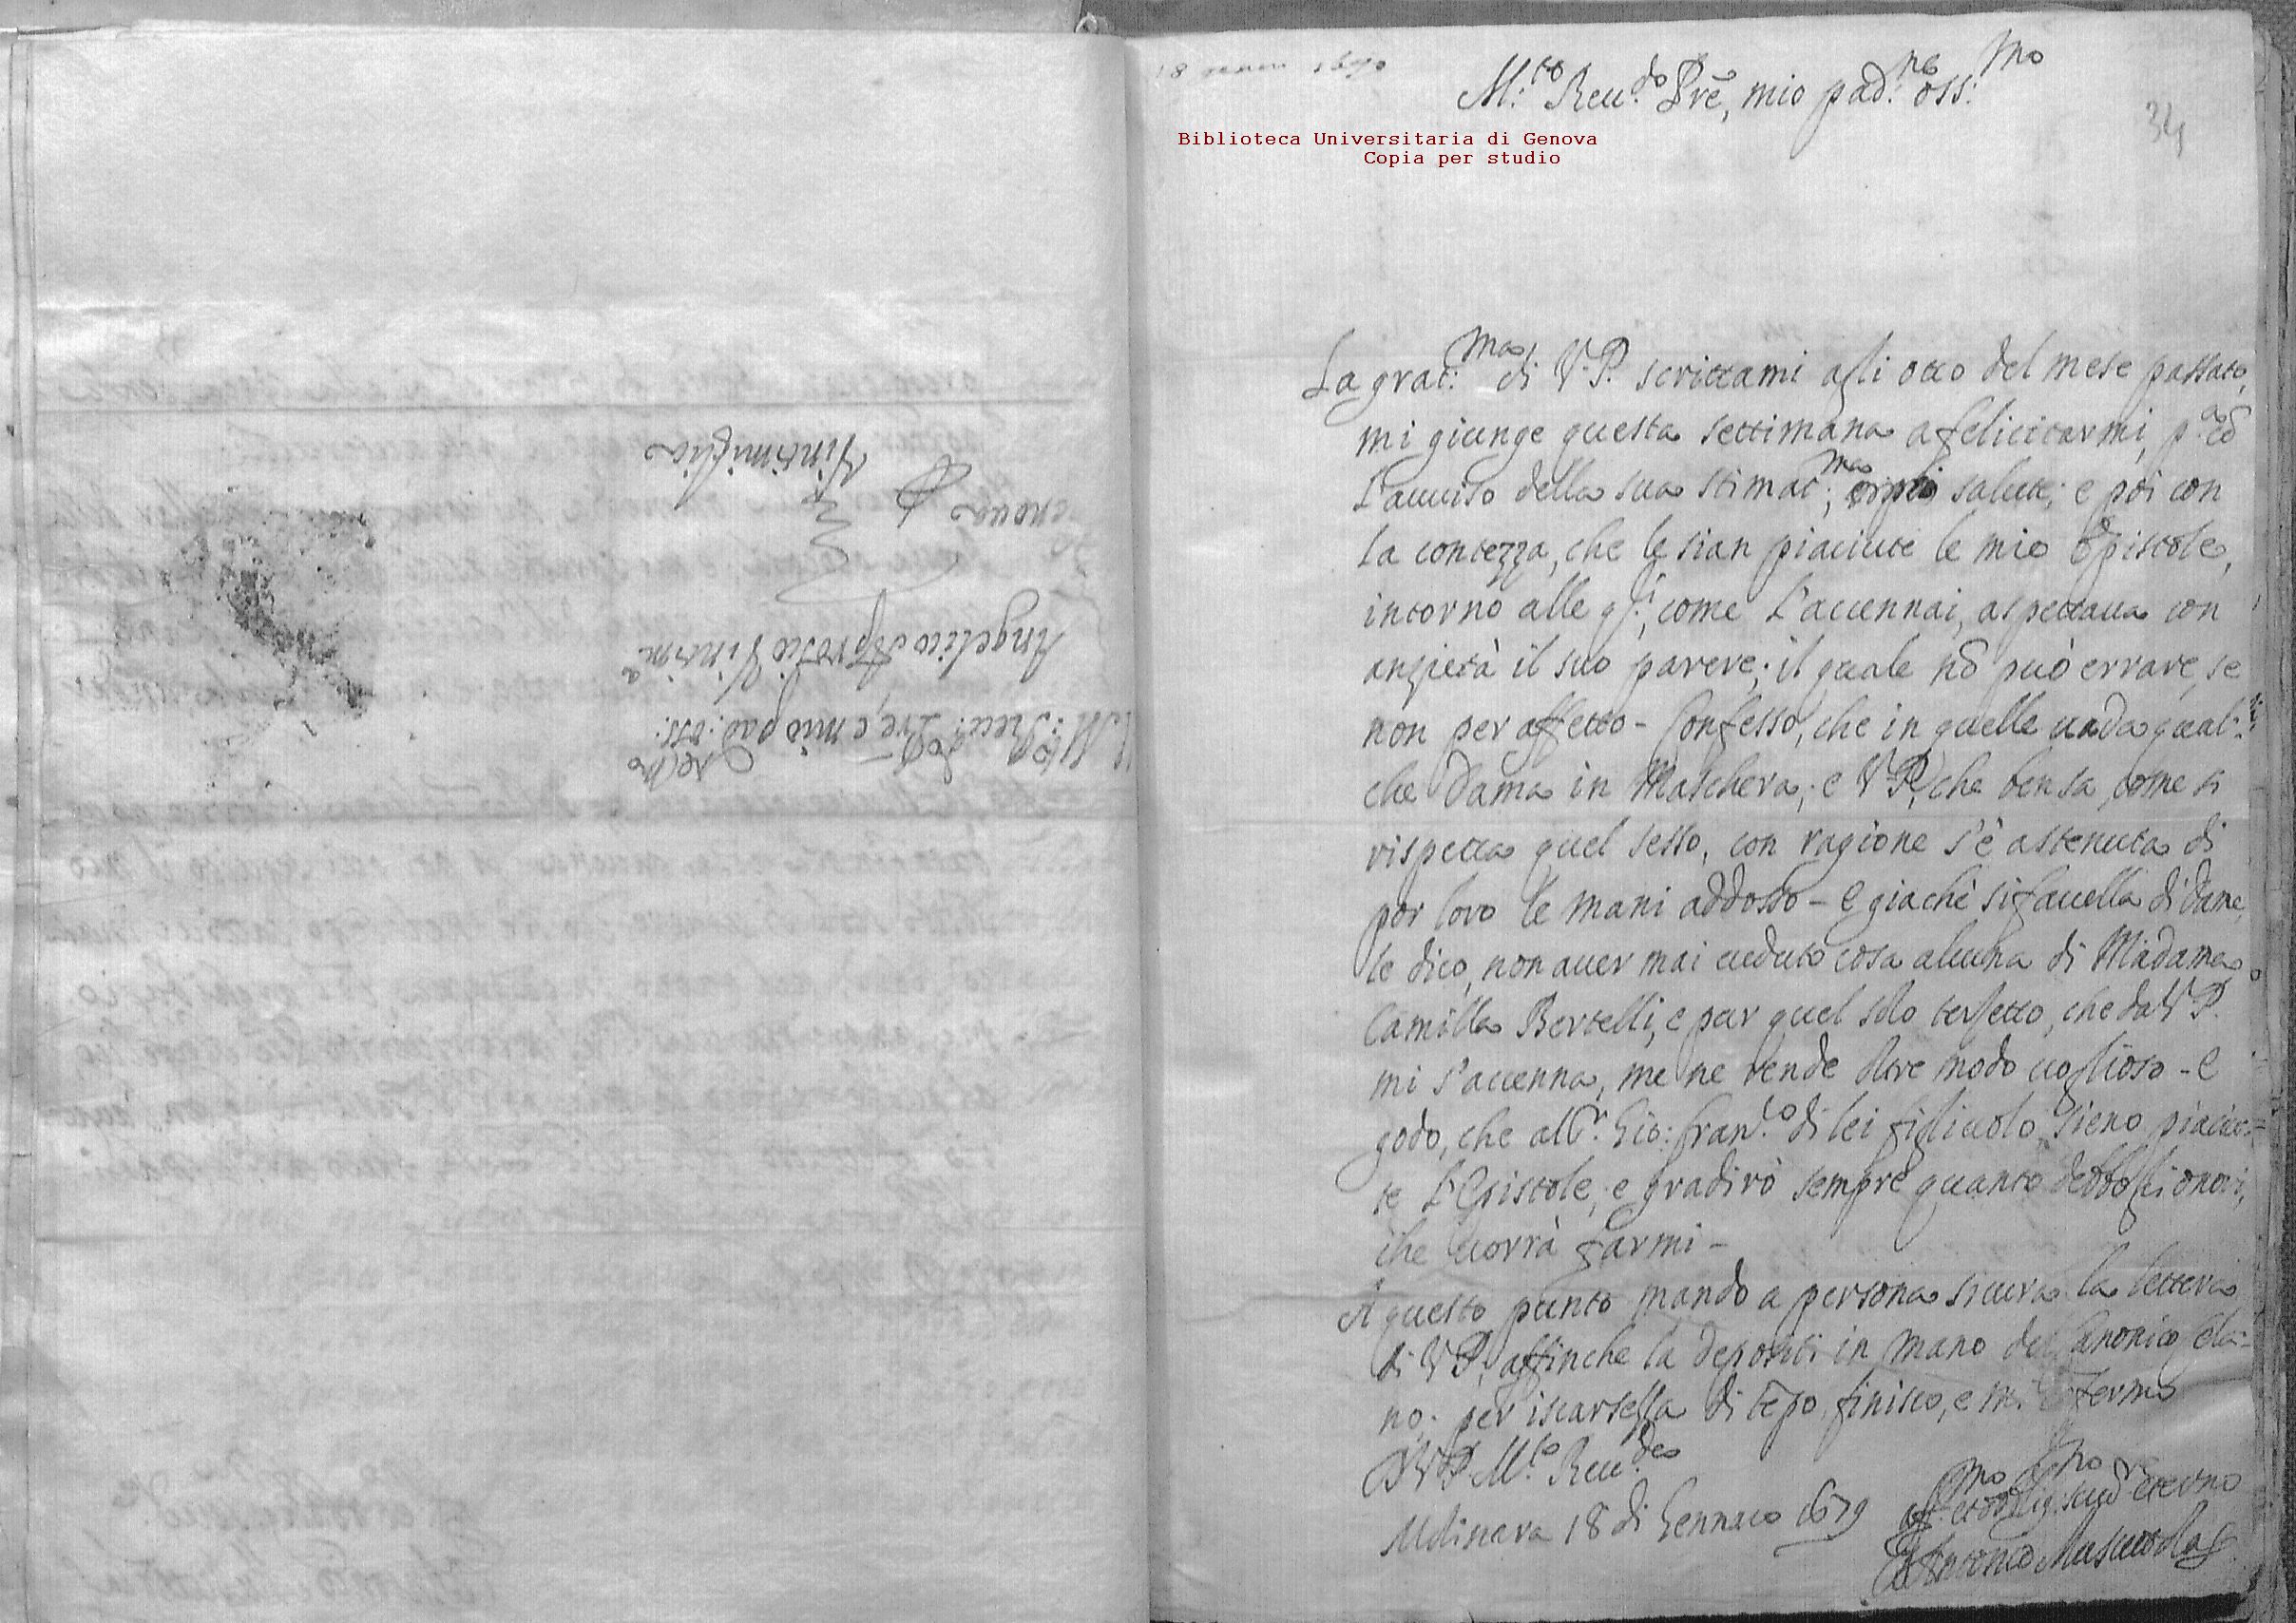 Vintimiglia
enova
Angelico Aprosio Vintim.a
M.to Reu.do Pre, e mio pad.ne oss.mo
18 genn 1679
M.to Reu.do Prẽ, mio pad.ne oss.mo
34
Biblioteca Universitaria di Genova
Copia per studio
La grat.ma di V. P. scrittami agli otto del mese passato,
mi giunge questa settimana a felicitarmi, p.a cõ
l'auuiso della sua stimat.ma salute; e poi con
la contezza, che le sian piaciute le mie Epistole,
intorno alle q.li, come l'accennai, aspettaua con
anzietà il suo parere; il quale nõ può errare, se
non per affetto - Confesso, che in quelle uada qual-
che Dama in Maschera; e V. P., che ben sa, come si
rispetta quel sesso, con ragione s'è astenuta di
por loro le mani addosso - E giachè si fauella di Dame,
le dico, non auer mai ueduto cosa alcuna di Madama
Camilla Bertelli, e pur quel solo terzetto, che da V. P.
mi s'accenna, me ne rende oltre modo uoglioso - E
godo, che al S.r Gio: Fran.co di lei figliuolo, sieno piaciu-
te l'Epistole; e gradirò sempre quanto debbo gli onori,
che uorrà farmi -
A questo punto mando a persona sicura la lettera
di V. P., affinche la depositi in mano del Canonico Cla-
no; per iscarsezza di tẽpo finisco, e mi fermo
D. V. P. M.to Reu.da
Solinara 18 di Gennaro 1679
Aff.mo et obblig.mo seru.re eterno
Antonio Muscettola